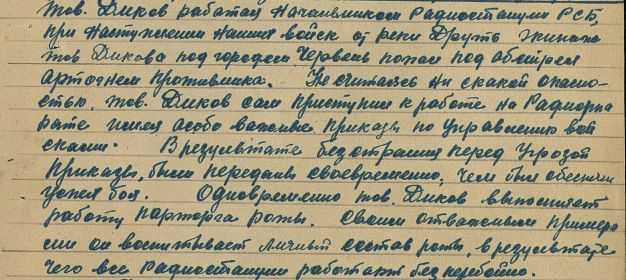 тов. Диков работая Начальником Радиостанции РСБ,
при наступлении наших войск от реки Друть экипаж
тов Дикова под городом Червень попал под обстрел
артогнем противника. Не считаясь ни с какой опасно-
стью, тов. Диков сам приступил к работе на Радиоппа
рате имея особо важные приказы по управлению вой
сками. В результате бесстрашия перед угрозой
приказы были переданы своевременно, чем был обеспечен
успех боя. Одновременно тов. Диков выполняет
работу парторга роты. Своим отважным примеро
он воспитывает личный состав роты, в результате
чего все Радиостанции работают бесперебойно.